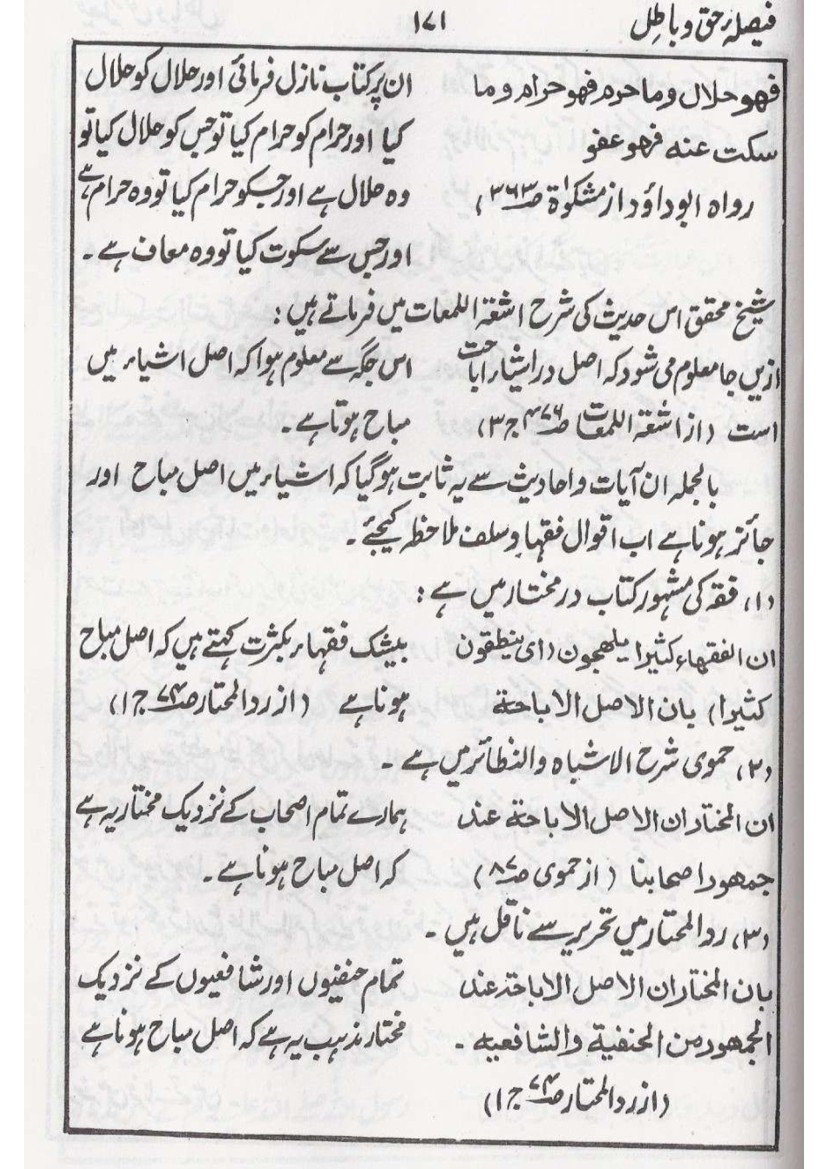 فیصلہ حق و باطل ۱۷۱
فهو حلال وما حرم فهو حرام وما ان پر کتاب نازل فرمائی اور حلال کو حلال
سکت عنه فهو عفو کیا اور حرام کو حرام کیا تو جس کو حلال کیا تو
رواه ابوداؤد از مشکوٰۃ صـ۳۶۳) وہ حلال ہے اور جسکو حرام کیا تو وہ حرام ہے
اور جس سے سکوت کیا تو وہ معاف ہے ۔
شیخ محقق اس حدیث کی شرح اشعۃ اللمعات میں فرماتے ہیں :
ازیں جا معلوم می شود کہ اصل در اشیاء اباحت اس جگہ سے معلوم ہوا کہ اصل اشیاء میں
است (از اشعۃ اللمعات صـ۴۷۶ ج۳) مباح ہونا ہے ۔
بالجملہ ان آیات و احادیث سے یہ ثابت ہو گیا کہ اشیاء میں اصل مباح اور
جائز ہونا ہے اب اقوال فقہاء و سلف ملاحظہ کیجئے ۔
(۱) فقہ کی مشہور کتاب در مختار میں ہے :
ان الفقهاء كثيرا يلهجون (ای ینطقون بیشک فقہاء بکثرت کہتے ہیں کہ اصل مباح
كثيرا) بان الاصل الاباحة ہونا ہے (از رد المحتار صـ۷۴ ج۱)
(۲) حموی شرح الاشباہ والنظائر میں ہے ۔
ان المختار ان الاصل الاباحة عند ہمارے تمام اصحاب کے نزدیک مختار یہ ہے
جمهور اصحابنا (از حموی صـ۸۷) کہ اصل مباح ہونا ہے ۔
(۳) رد المحتار میں تحریر سے ناقل ہیں ۔
بان المختار ان الاصل الاباحة عند تمام حنفیوں اور شافعیوں کے نزدیک
الجمهور من الحنفية والشافعيه ۔ مختار مذہب یہ ہے کہ اصل مباح ہونا ہے
(از رد المحتار صـ۷۴ ج۱)